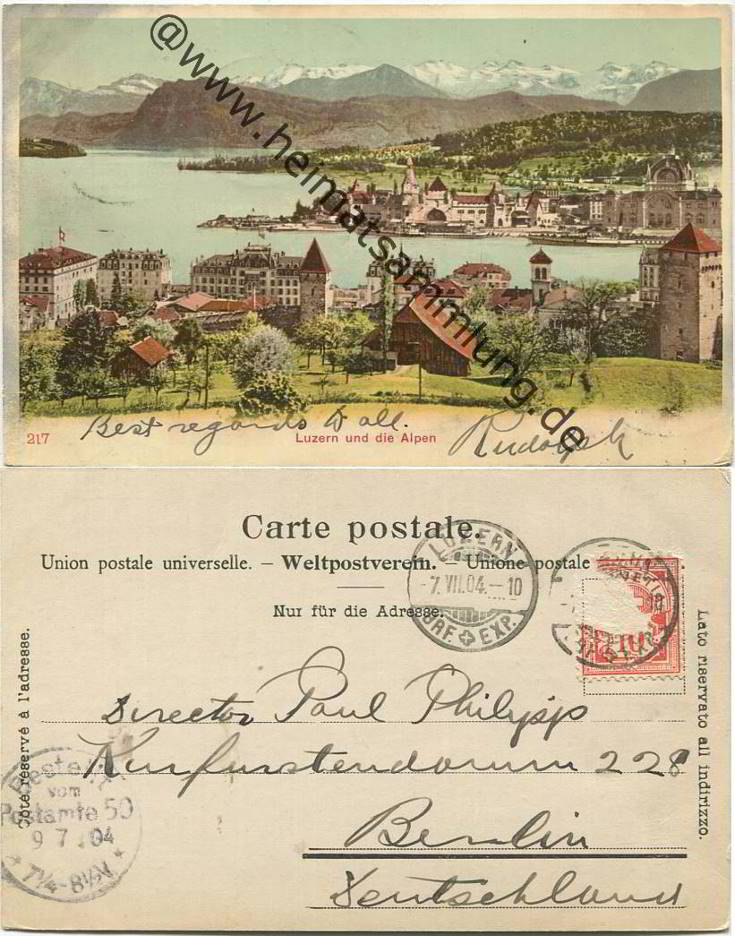 @www.heimatsammlung.de
Best regards to all.
Rudolph
217
Luzern und die Alpen
Carte postale.
Union postale universelle. – Weltpostverein. – Unione postale
Nur für die Adresse.
Côté réservé à l'adresse.
Lato riservato all indirizzo.
LUZERN
-7.VII.04.-10
BRF. EXP.
Director Paul Philipp
Kurfurstendamm 228
Berlin
Deutschland
Bestellt
vom
Postamte 50
9 7 04
7¼-8½V